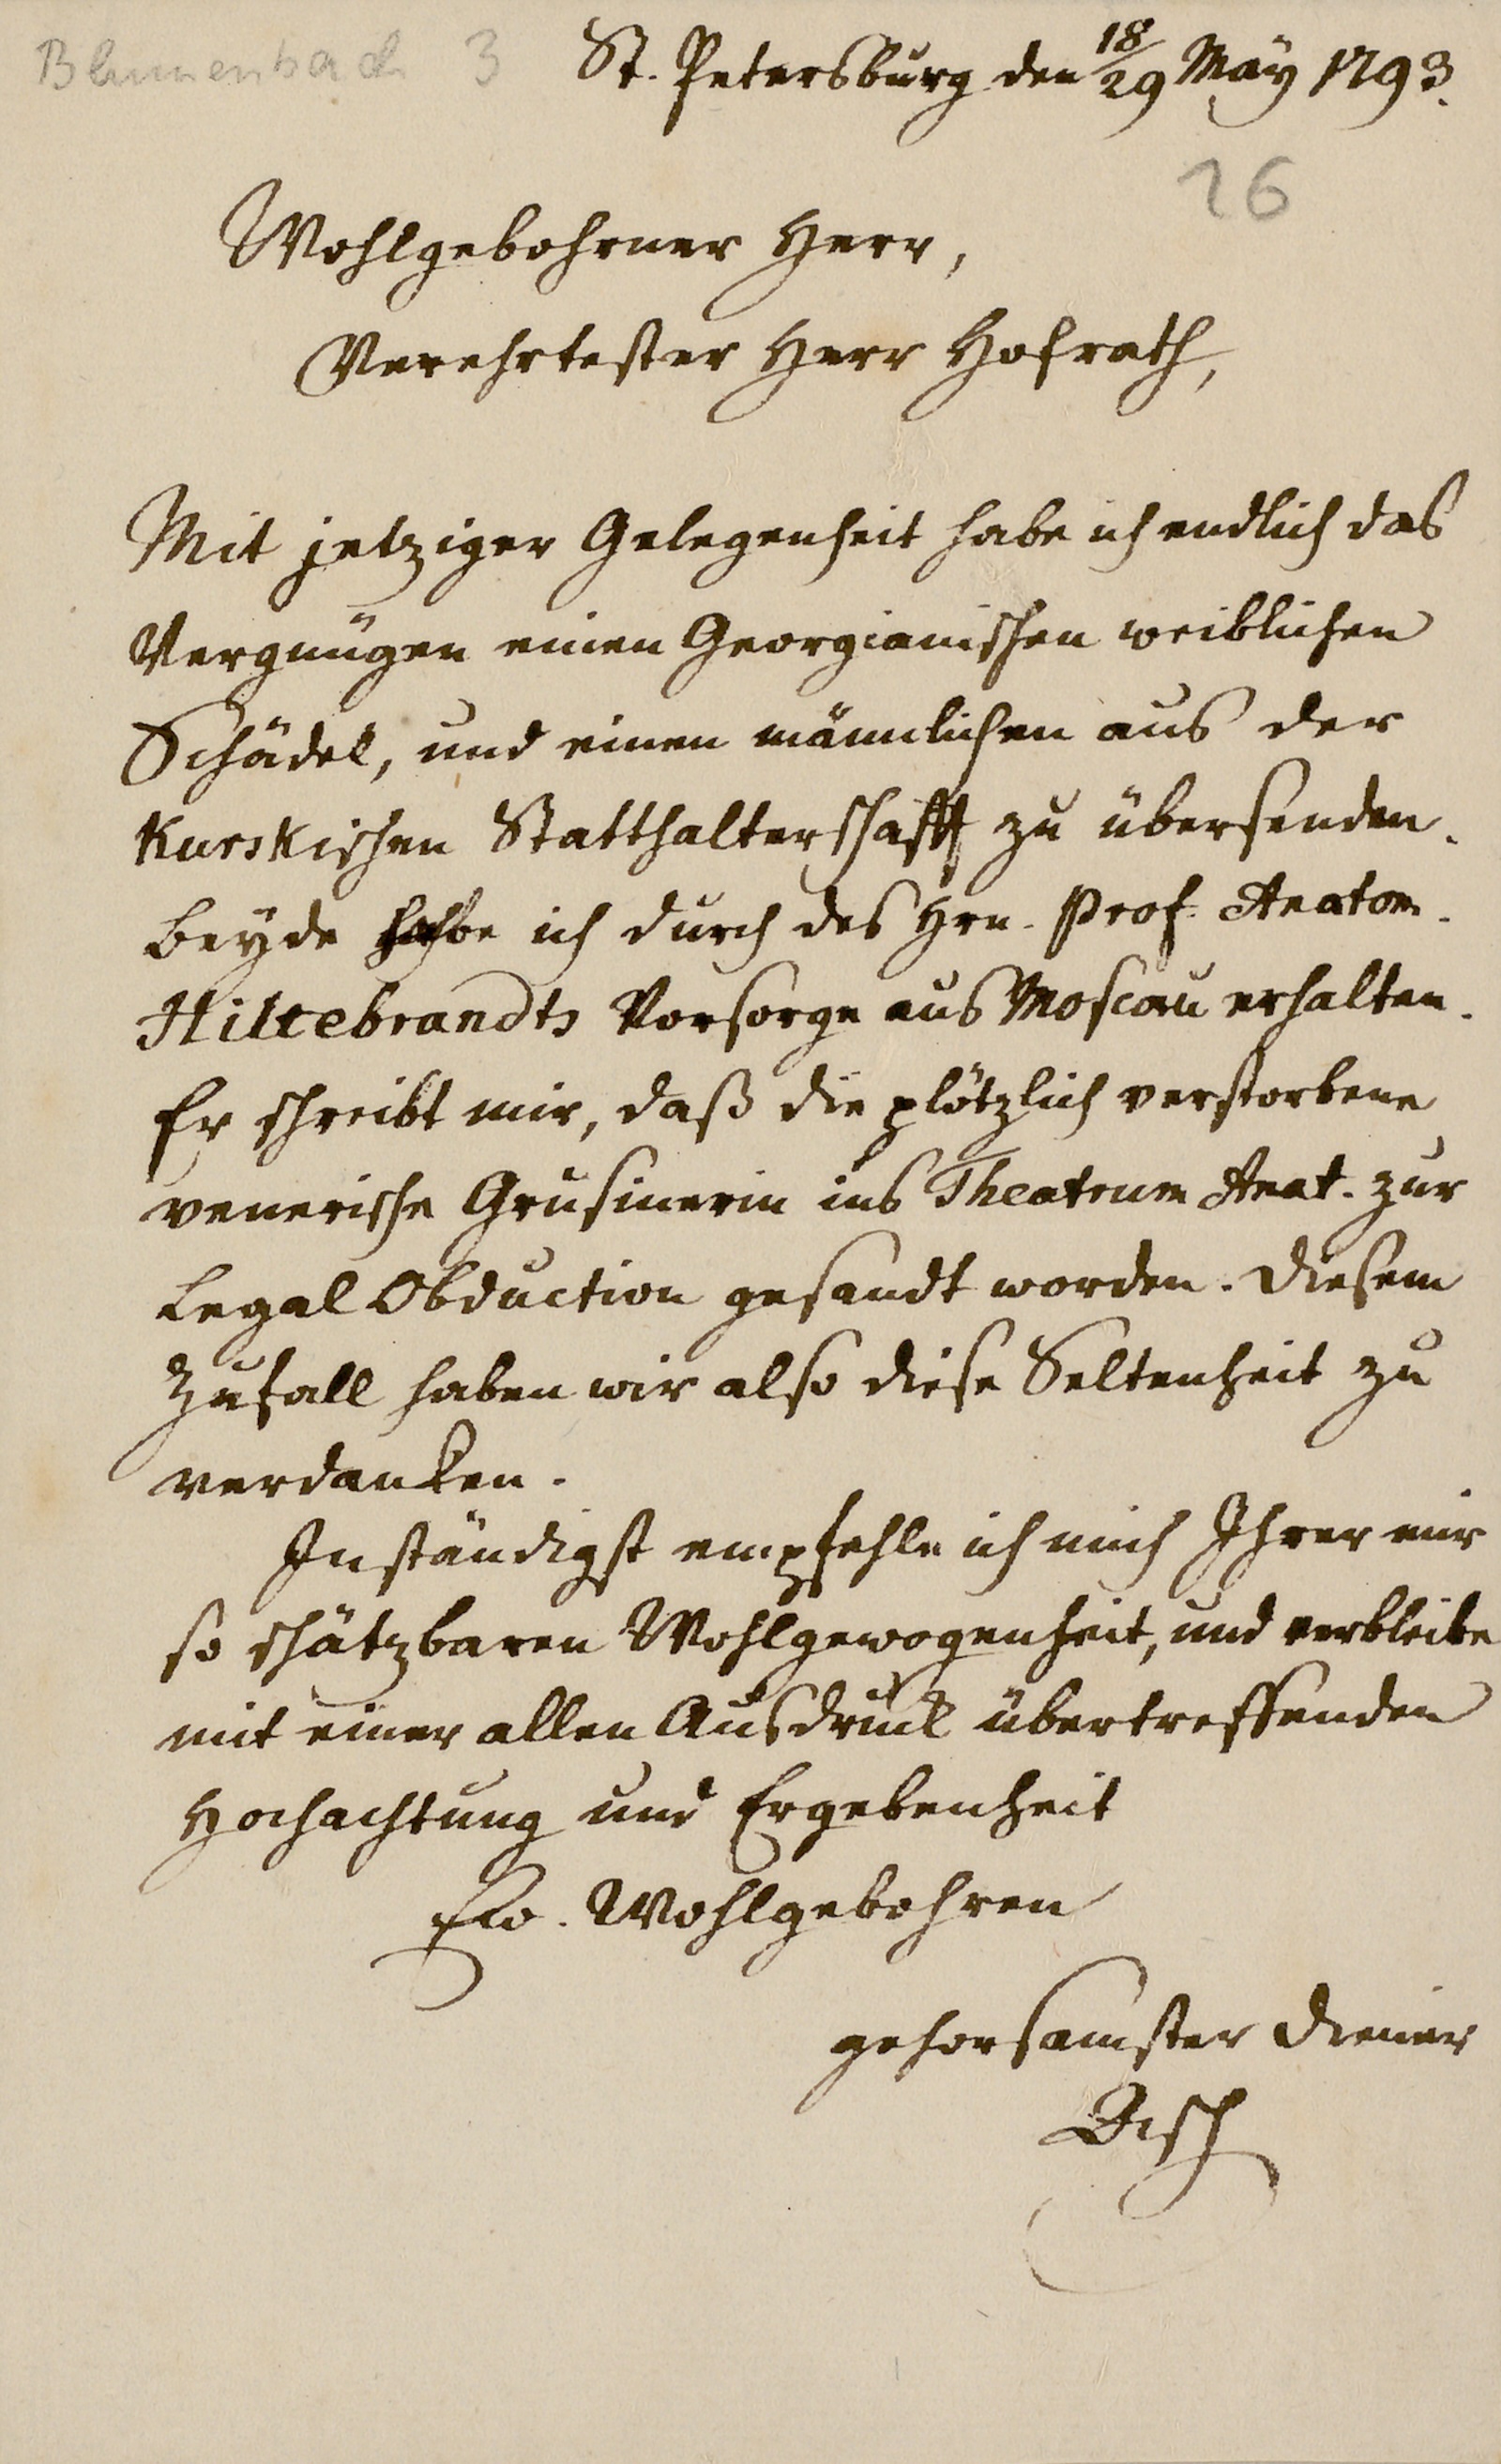 Blumenbach 3
St. Petersburg den 18/29 Maÿ 1793.
26
Wohlgebohrner Herr,
Verehrtester Herr Hofrath,
Mit jetziger Gelegenheit habe ich endlich das
Vergnügen einen Georgianischen weiblichen
Schädel, und einen männlichen aus der
Kurskischen Statthalterschafft zu übersenden.
Beÿde habe ich durch des Hrn. Prof. Anatom.
Hiltebrandts Vorsorge aus Moscau erhalten.
Er schreibt mir, daß die plötzlich verstorbene
venerische Grusinerin ins Theatrum Anat. zur
Legal Obduction gesandt worden. Diesem
Zufall haben wir also diese Seltenheit zu
verdanken.
Inständigst empfehle ich mich Ihrer mir
so schätzbaren Wohlgewogenheit, und verbleibe
mit einer allen Ausdruck übertreffenden
Hochachtung und Ergebenheit
Ew. Wohlgebohren
gehorsamster Diener
Asch